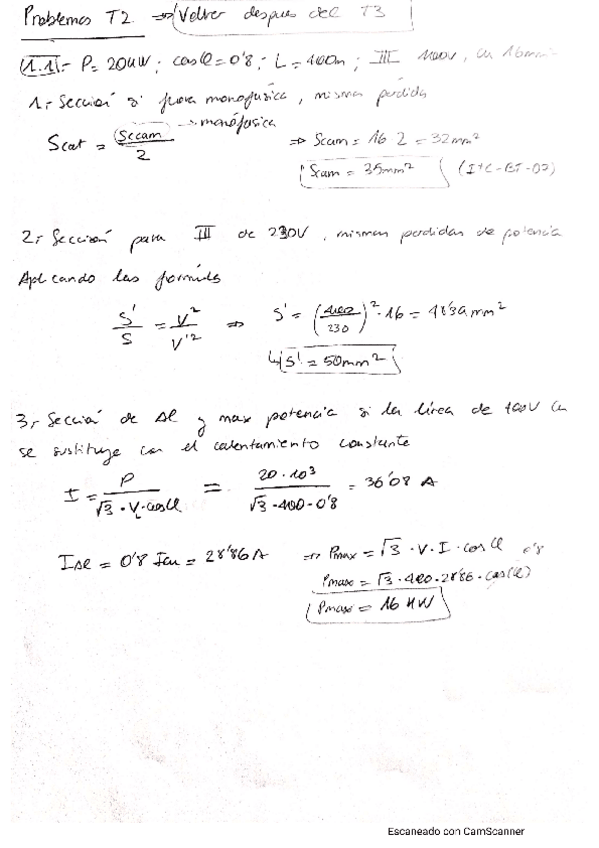 Problemas T2 ⇒ Volver despues del T3
(1.1)- P = 20kW ; cosφ = 0'8 ; L = 400m ; III 400V, Cu 16mm²
1,- Sección si fuera monofásica, misma perdida
Scat = Sccam/2 → monofásica ⇒ Scam = 16·2 = 32mm²
Scam = 35mm² (ITC-BT-07)
2,- Sección para III de 230V, mismas perdidas de potencia
Aplicando las formula
S'/S = V²/V'² ⇒ S' = (400/230)²·16 = 48'39mm²
↳ S' = 50mm²
3,- Sección de Al y max potencia si la línea de 400V Cu
se sustituye con el calentamiento constante
I = P/(√3·V·cosφ) = 20·10³/(√3·400·0'8) = 36'08 A
I Al = 0'8 Icu = 28'86 A ⇒ Pmax = √3·V·I·cosφ 0'8
Pmax = √3·400·28'86·cos(φ)
Pmax = 16 kW
Escaneado con CamScanner